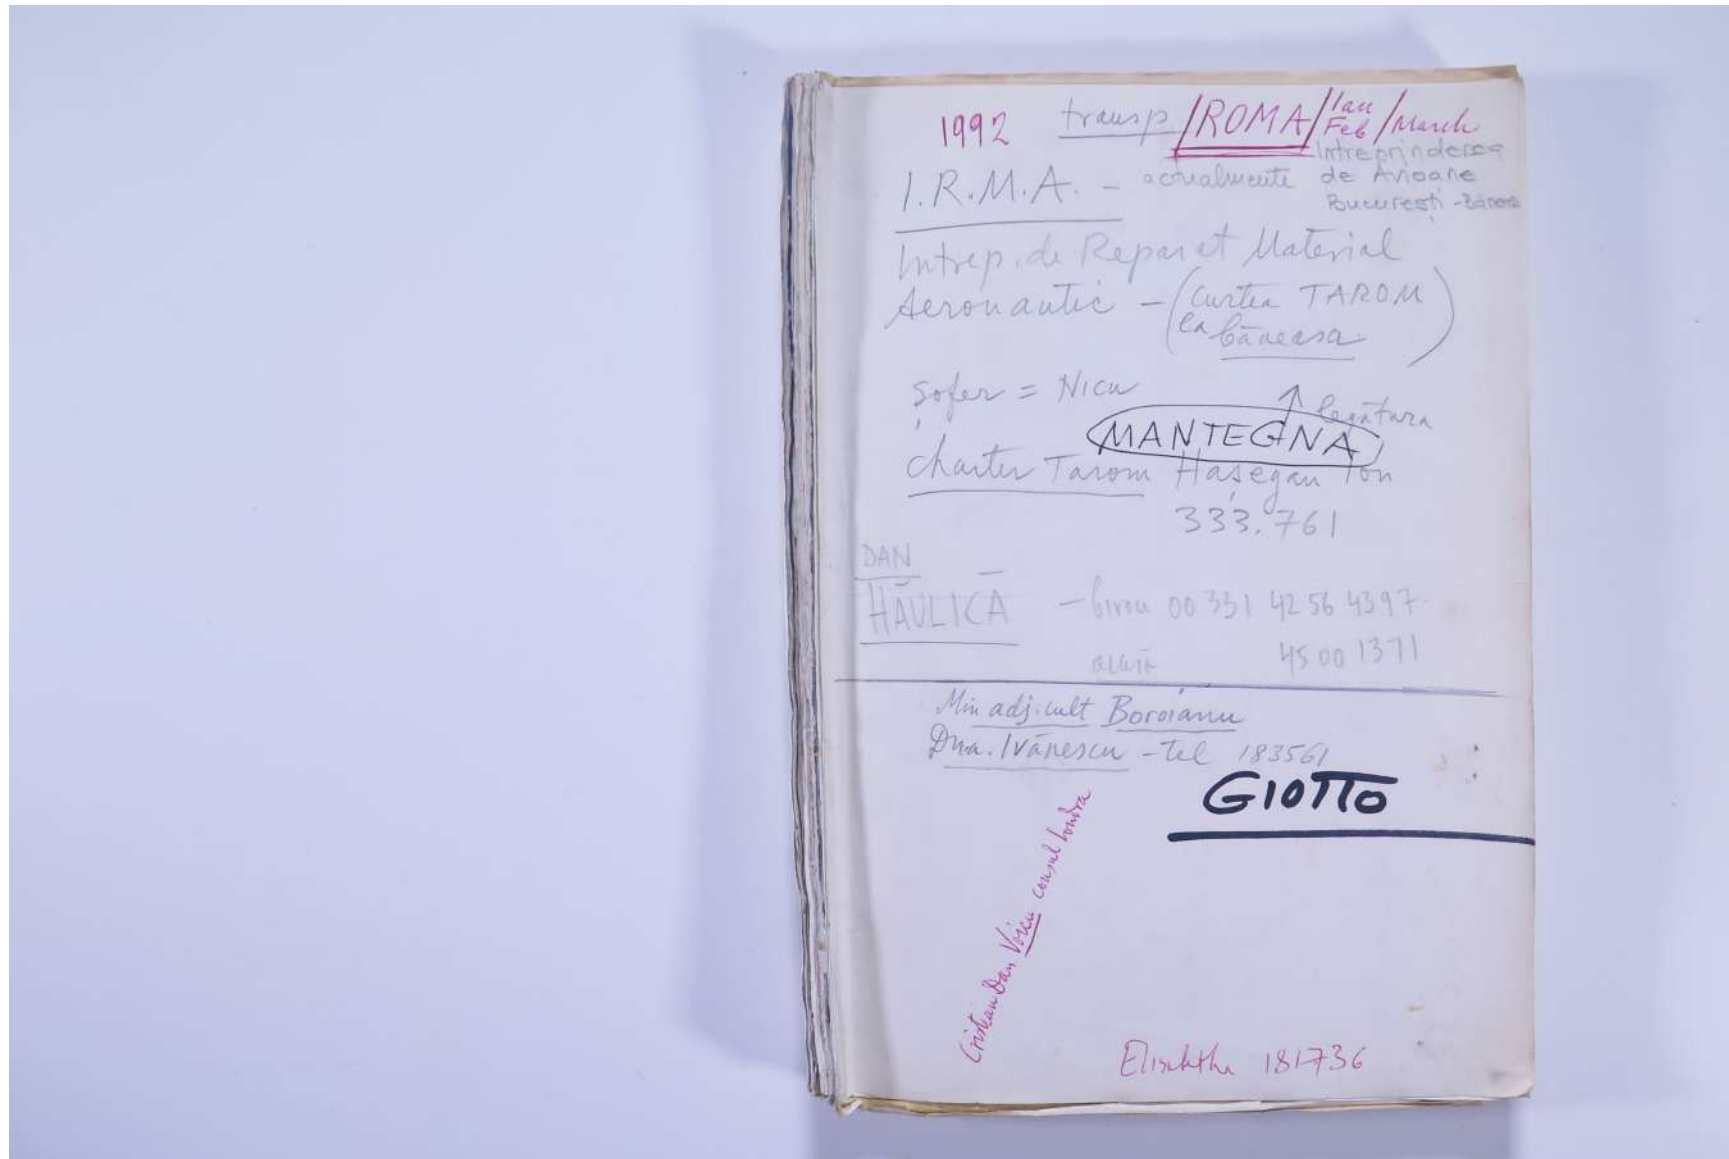 1992 transp /ROMA/ Ian Feb / March
I.R.M.A. - actualmente Intreprinderea
de Avioane
București - Băneasa
Intrep. de Reparat Material
Aeronautic - (Curtea TAROM
la băneasa)
șofer = Nicu
↑ legătura
MANTEGNA
charter Tarom Hașegan Ion
333.761
DAN
HĂULICĂ - birou 00 331 42 56 4397
acasă 45 00 1371
Min adj. cult Boroianu
Dna. Ivănescu - tel 183561
GIOTTO
Cristian Dan Voicu consul Londra
Elisabtha 181736